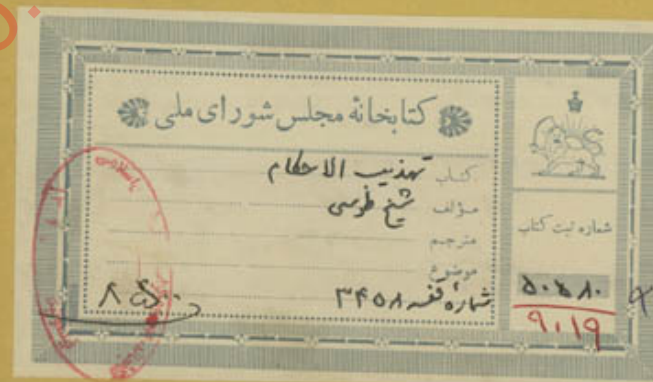 کتابخانهٔ مجلس شورای ملی
کتاب تهذیب الاحکام
مؤلف شیخ طوسی
مترجم
موضوع
شمارهٔ قفسه ۳۴۵۸
شماره ثبت کتاب
۵۰۵۸۰
۹۰۱۹